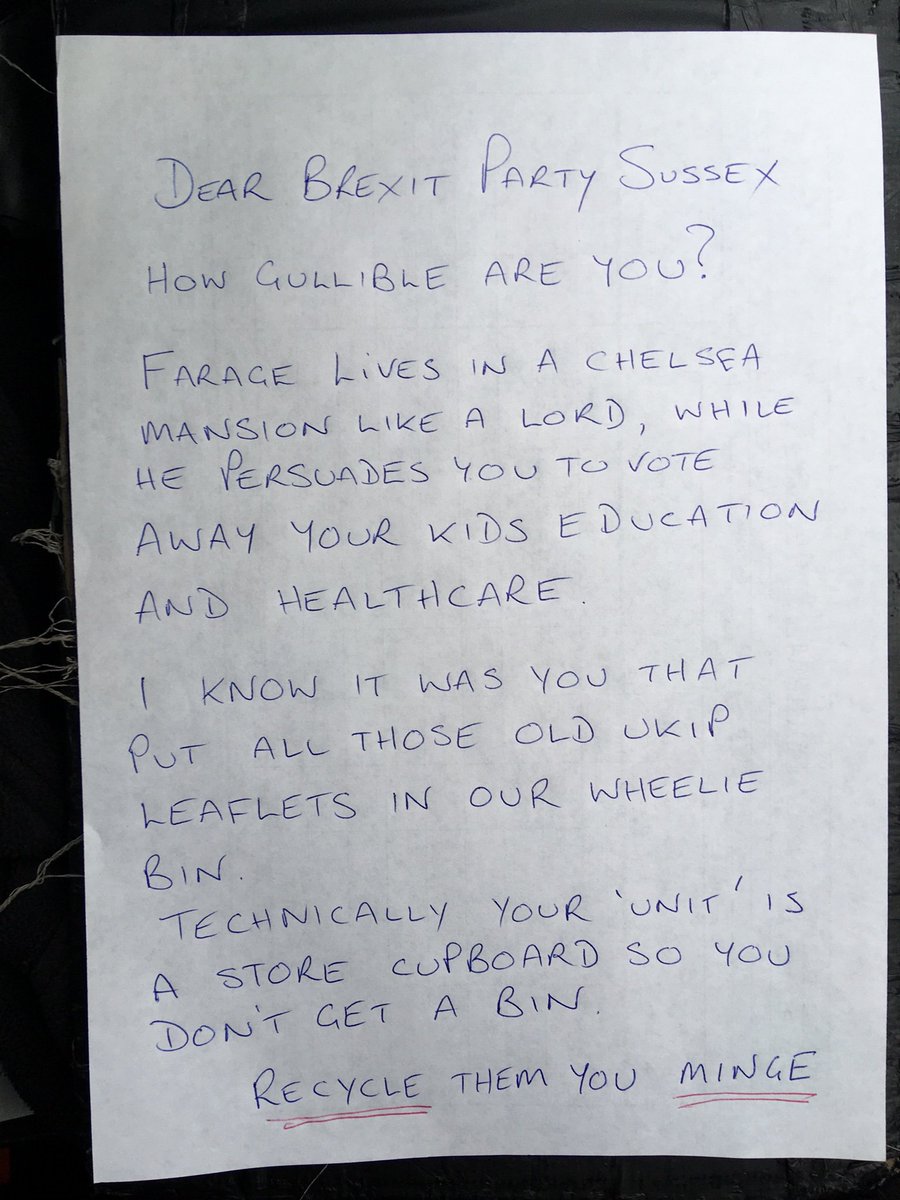 DEAR BREXIT PARTY SUSSEX
HOW GULLIBLE ARE YOU?
FARAGE LIVES IN A CHELSEA
MANSION LIKE A LORD, WHILE
HE PERSUADES YOU TO VOTE
AWAY YOUR KIDS EDUCATION
AND HEALTHCARE.
I KNOW IT WAS YOU THAT
PUT ALL THOSE OLD UKIP
LEAFLETS IN OUR WHEELIE
BIN.
TECHNICALLY YOUR 'UNIT' IS
A STORE CUPBOARD SO YOU
DON'T GET A BIN.
RECYCLE THEM YOU MINGE